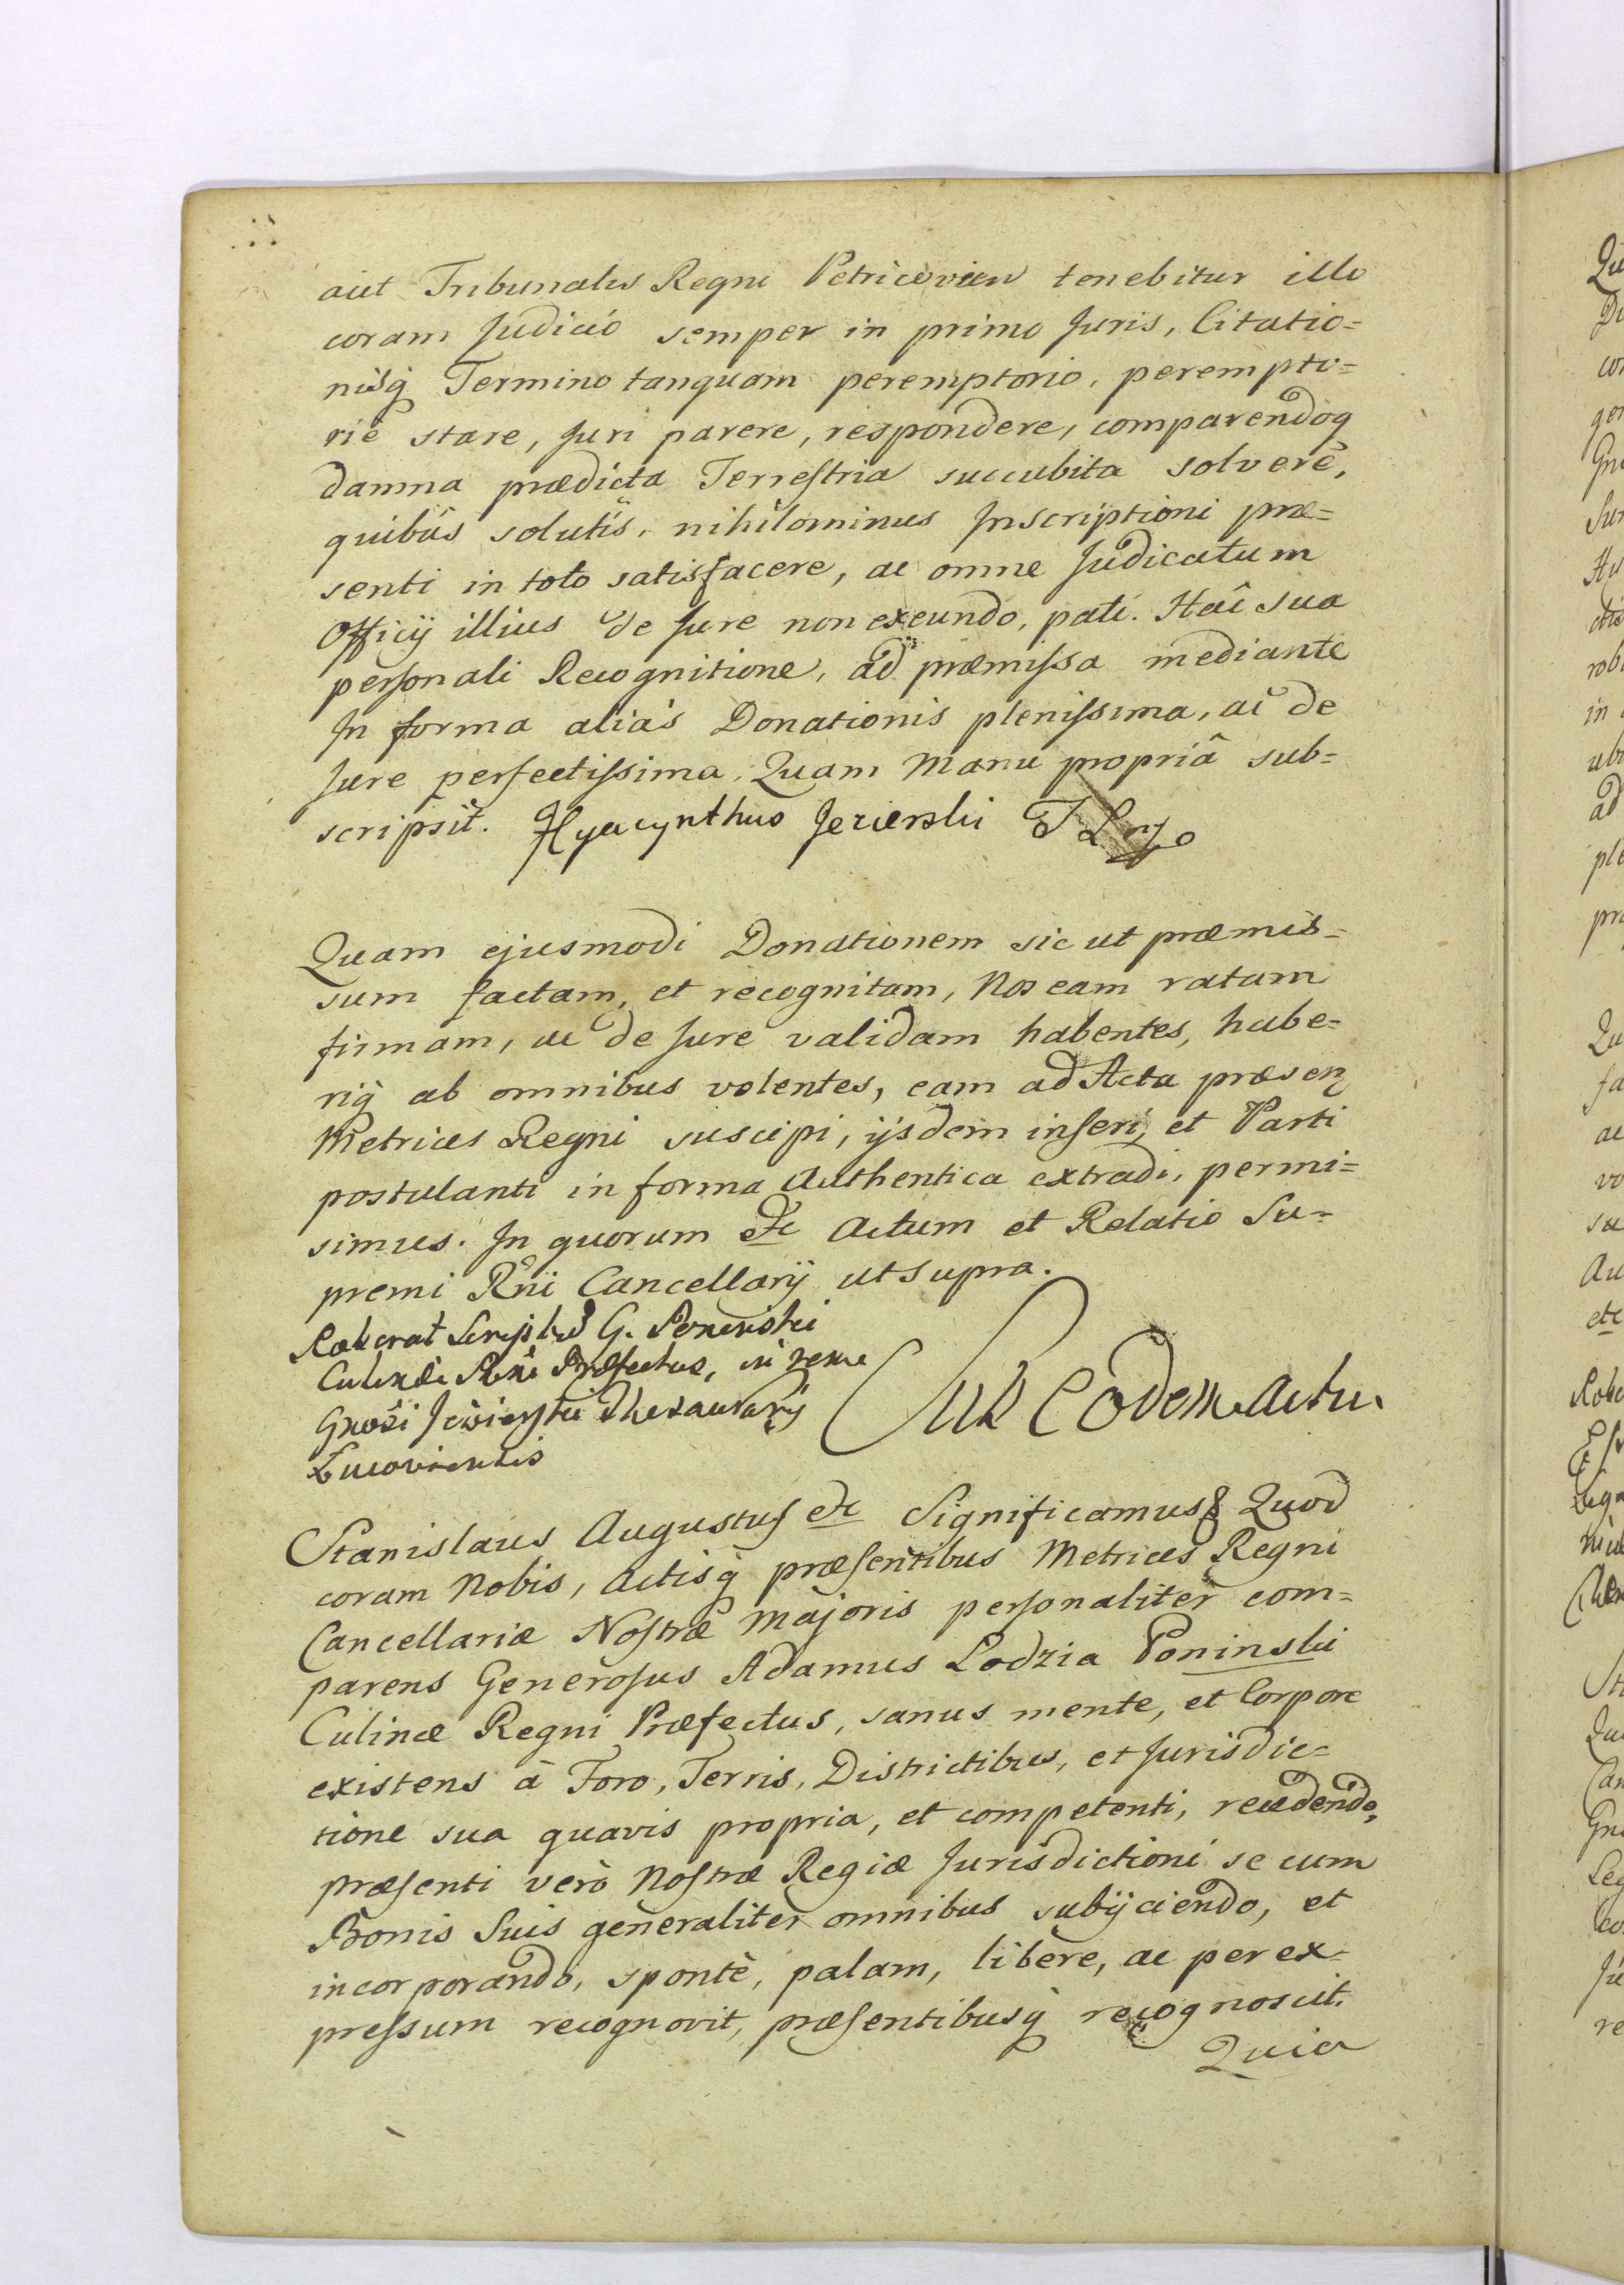 aut Tribunalis Regni Petricovien tenebitur illo
coram Judicio semper in primo Juris, Citatio=
nisq̃ Termino tanquam peremptorio, perempto=
riè stare, Juri parere, respondere, comparendoq
damna prædicta Terrestria succubita solverè,
quibus solutis, nihilominus Inscriptioni præ=
senti in toto satisfacere, ac omne Judicatum
Officij illius de Jure non exeundo, pati. Hac sua
personali Recognitione, ad præmissa mediante
In forma aliàs Donationis plenissima, ac de
Jure perfectissima. Quam Manu propriâ sub=
scripsit. Hyacynthus Jezierski
Quam ejusmodi Donationem sic ut præmis=
sum factam, et recognitam, Nos eam ratam
firmam, ac de Jure validam habentes, habe=
riq̃ ab omnibus volentes, eam ad Acta præsen
Metrices Regni suscipi, ijsdem inseri, et Parti
postulanti in forma Authentica extradi, permi=
simus. In quorum etc Actum et Relatio Su=
premi Rñi Cancellarij ut supra.
Roborat Scriptū G. Poninski
Culinæ Rñi Præfectus, in rem
Gnosi Jezierski Thesaurarij
Lucoviensis
Sub Eodem Actu.
Stanislaus Augustus etc Significamus Quod
coram Nobis, Actisq̃ præsentibus Metrices Regni
Cancellariæ Nostræ Majoris personaliter com=
parens Generosus Adamus Lodzia Poninski
Culinæ Regni Præfectus, sanus mente, et Corpore
existens à Foro, Terris, Districtibus, et Jurisdic=
tione sua quavis propria, et competenti, recedendo,
præsenti verò Nostræ Regiæ Jurisdictioni se cum
Bonis Suis generaliter omnibus subijciendo, et
incorporando, spontè, palam, libere, ac per ex=
pressum recognovit, præsentibusq̃ recognoscit.
Quia